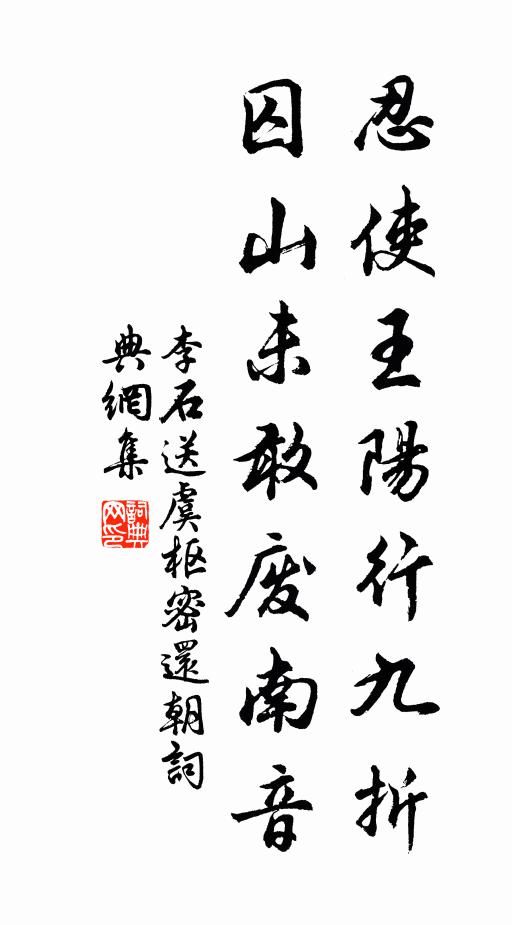 忍使王陽行九折
囚山未敢废南音
李石送虞枢密還朝詞
典網集
詞典网印